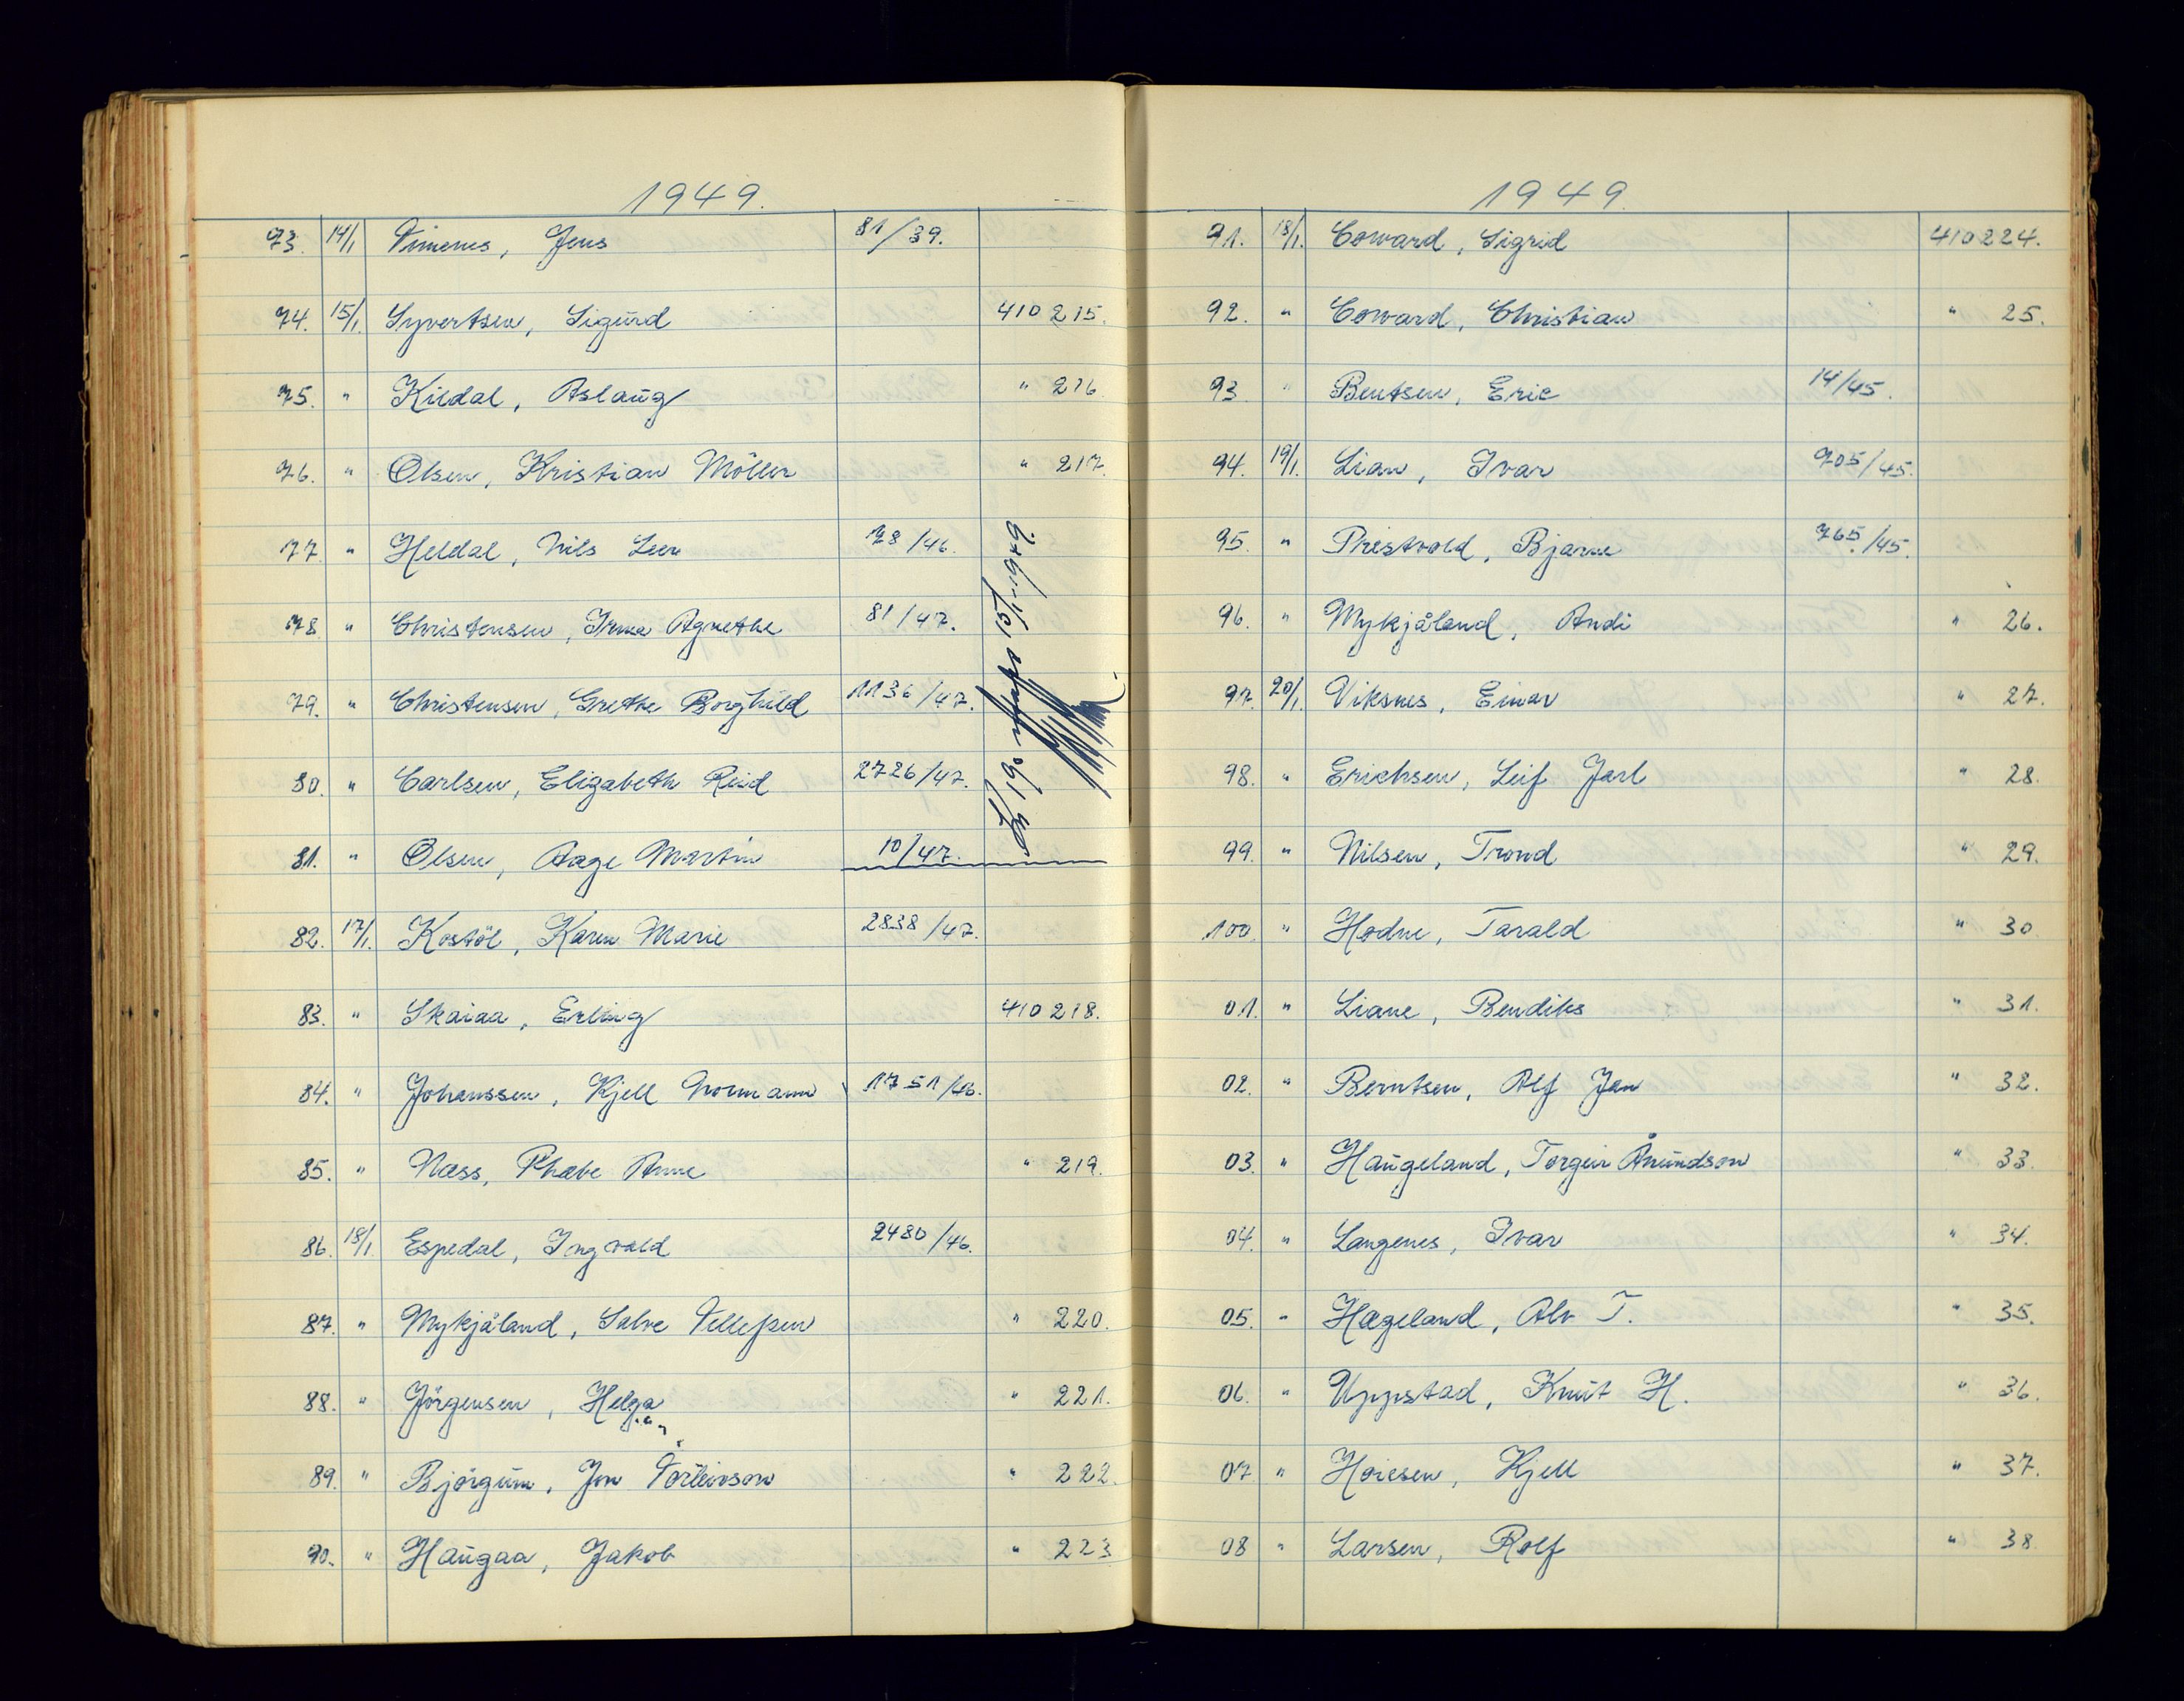 1949.
73. 14/1 Vimenes, Jens 81/39.
74. 15/1. Syvertsen, Sigurd 410 215.
75. " Kildal, Aslaug " 216
76. " Olsen, Kristian Möller " 217.
77. " Heldal, Nils Leer 78/46.
78. " Christensen, Irma Agnethe 81/47.
79. " Christensen, Grethe Borghild 1136/47.
80. " Carlsen, Elizabeth Reid 2726/47.
81. " Olsen, Aage Martin 10/47.
15/1-1949.
82. 17/1. Kostöl, Karen Marie 2838/47.
83. " Skaiaa, Erling 410 218.
84. " Johanssen, Kjell Normann 1751/46.
85. " Næss, Phæbe Anne " 219.
86. 18/1 Espedal, Ingvald 2480/46.
87. " Mykjåland, Salve Tellefsen " 220.
88. " Jörgensen, Helga " 221.
89. " Björgum, Jon Torleivson " 222.
90. " Haugaa, Jakob " 223
1949.
91. 18/1. Coward, Sigrid 410224.
92. " Coward, Christian " 25.
93 " Bentsen, Eric 14/45.
94. 19/1. Lian, Ivar 705/45.
95. " Prestvold, Bjarne 765/45.
96. " Mykjåland, Andi " 26.
97. 20/1. Viksnes, Einar " 27.
98. " Erichsen, Leif Jarl " 28.
99. " Nilsen, Trond " 29.
100. " Hodne, Tarald " 30
01. " Liane, Bendiks " 31.
02. " Berntsen, Alf Jan " 32.
03. " Haugeland, Torgeir Ånundson " 33.
04. " Langenes, Ivar " 34.
05. " Hægeland, Alv T. " 35.
06. " Uppstad, Knut H. " 36.
07 " Hoiesen, Kjell " 37.
08 " Larsen, Rolf " 38.